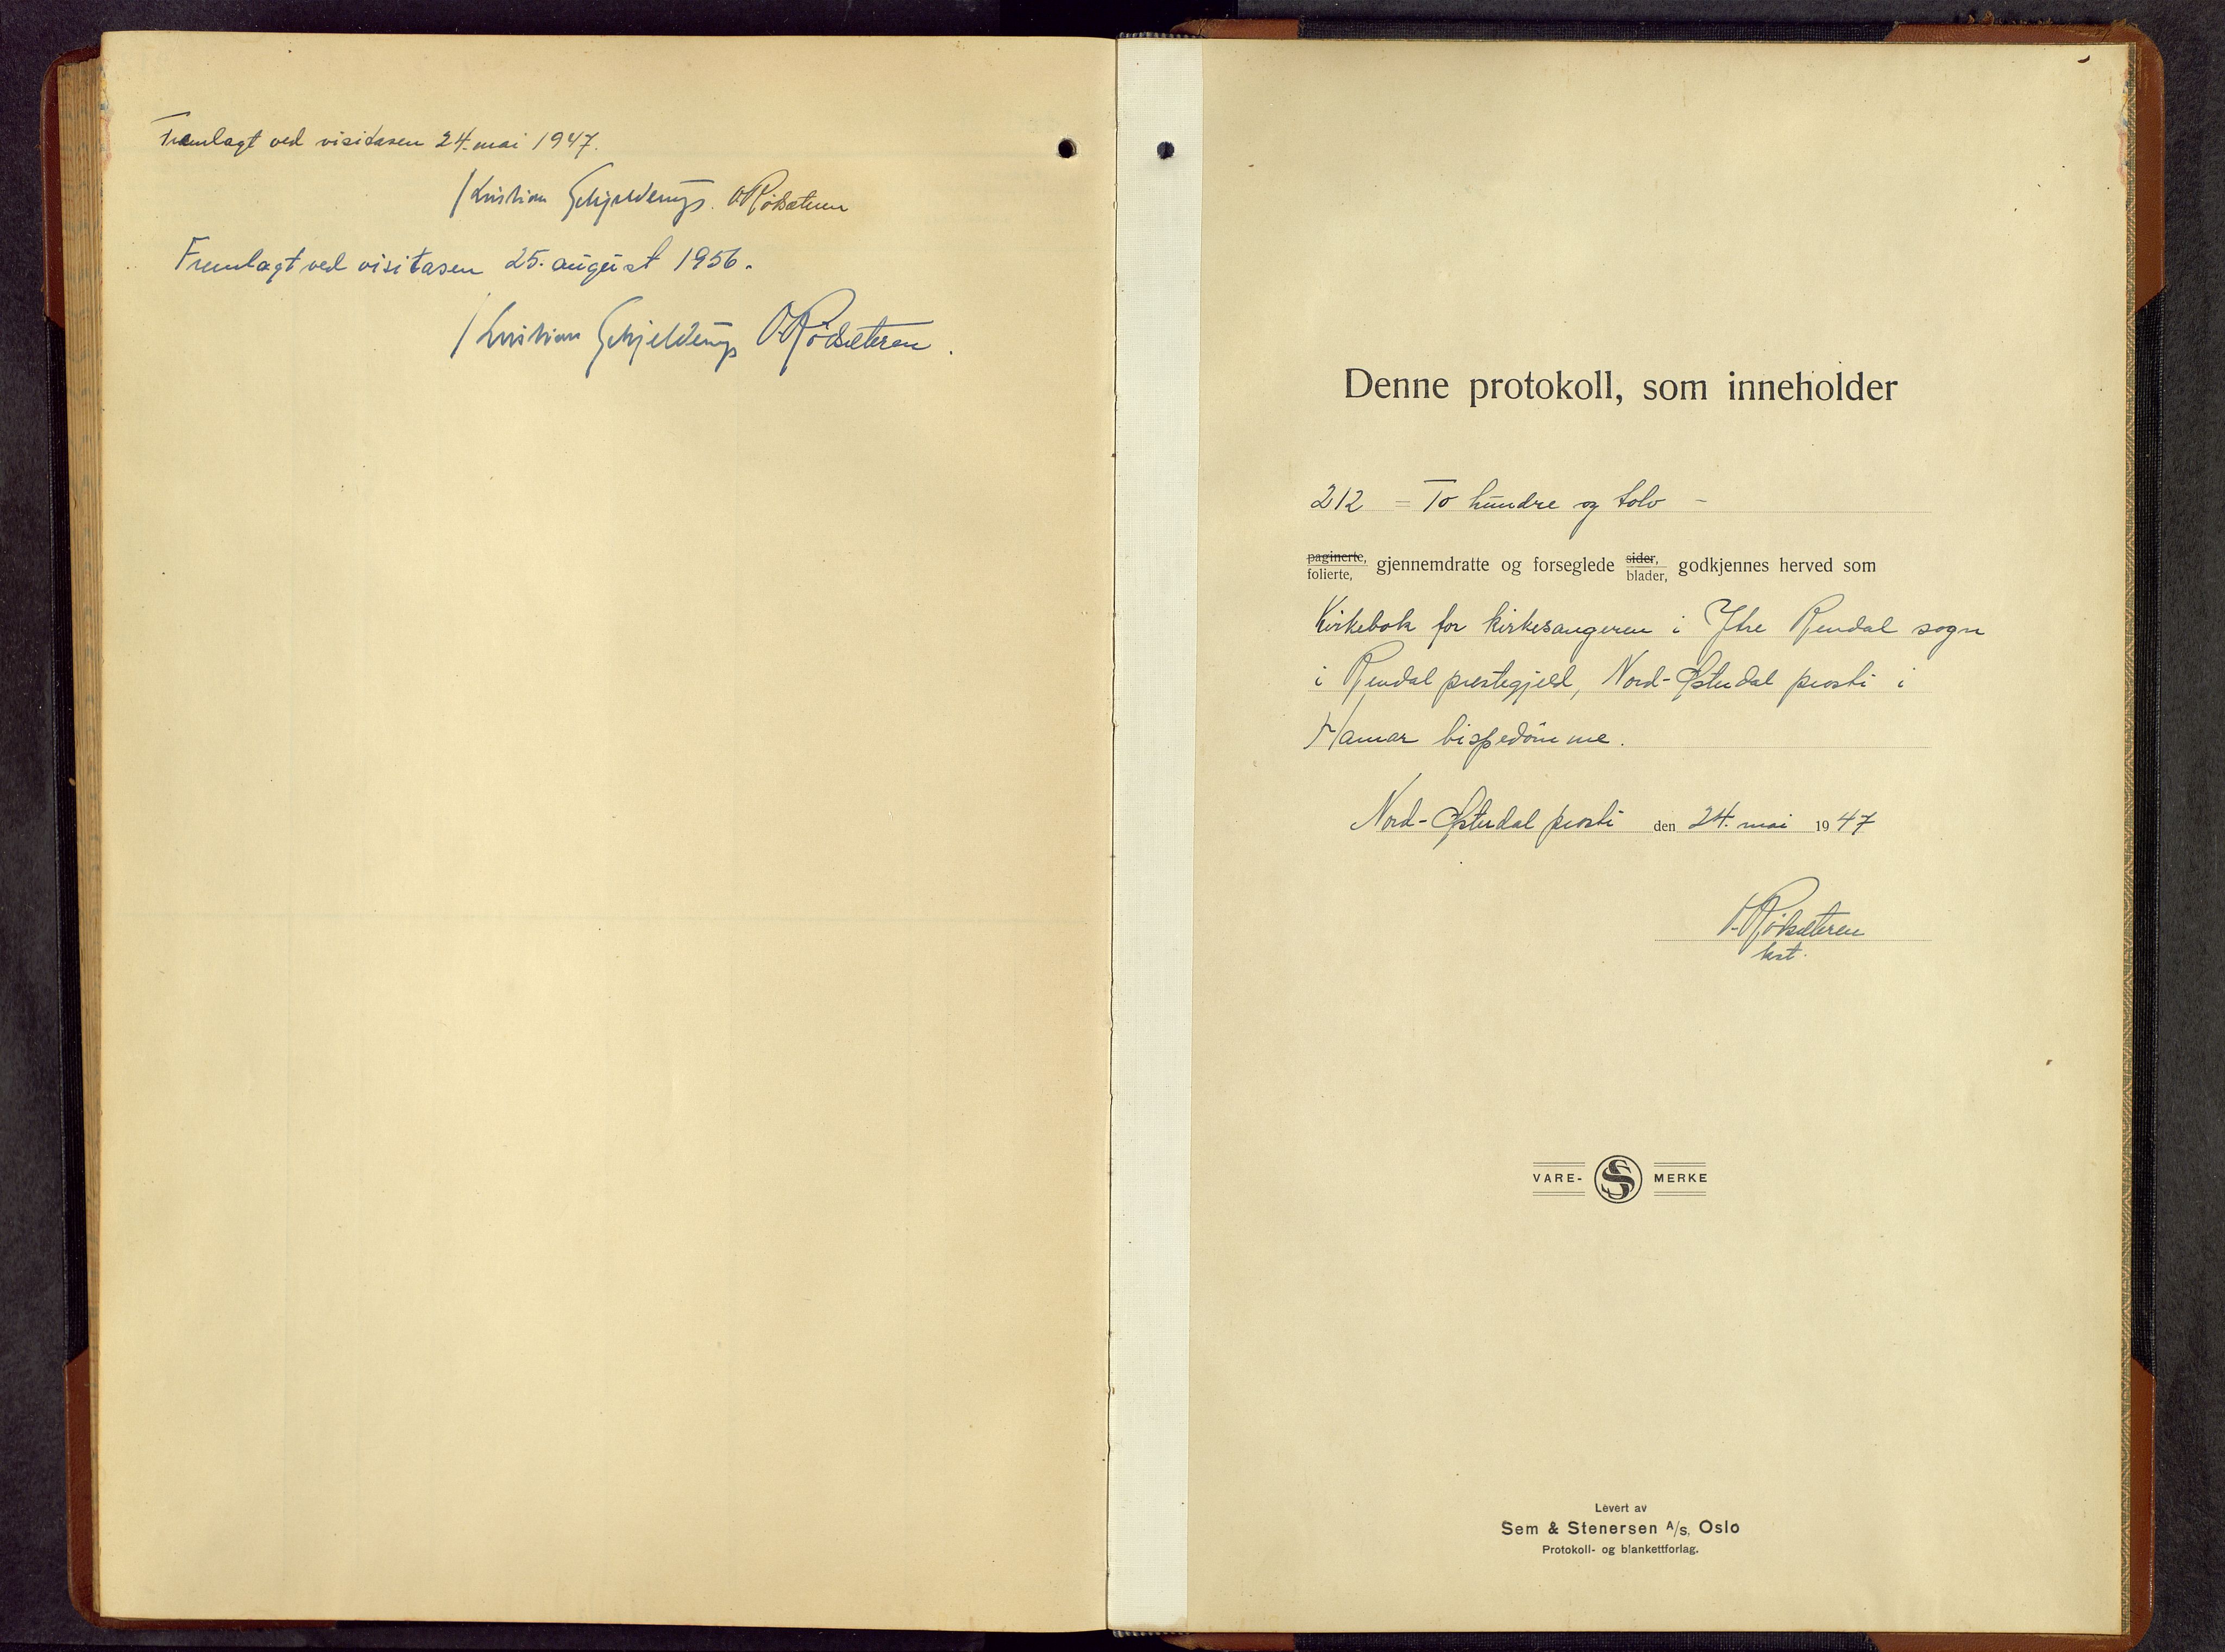 Fremlagt ved visitasen 24. mai 1947.
/ Kristian Schjelderup. O. Rödsæteren
Fremlagt ved visitasen 25. august 1956.
/ Kristian Schjelderup O. Rödsæteren.
Denne protokoll, som inneholder
212 = To hundre og tolv -
paginerte, folierte, gjennemdratte og forseglede sider, blader, godkjennes herved som
Kirkebok for kirkesangeren i Ytre Rendal sogn
i Rendal prestegjeld, Nord-Østerdal prosti i
Hamar bispedömme.
Nord-Østerdal prosti den 24. mai 1947
O. Rödsæteren
kst.
VARE- SS MERKE
Levert av
Sem & Stenersen A/s, Oslo
Protokoll- og blankettforlag.